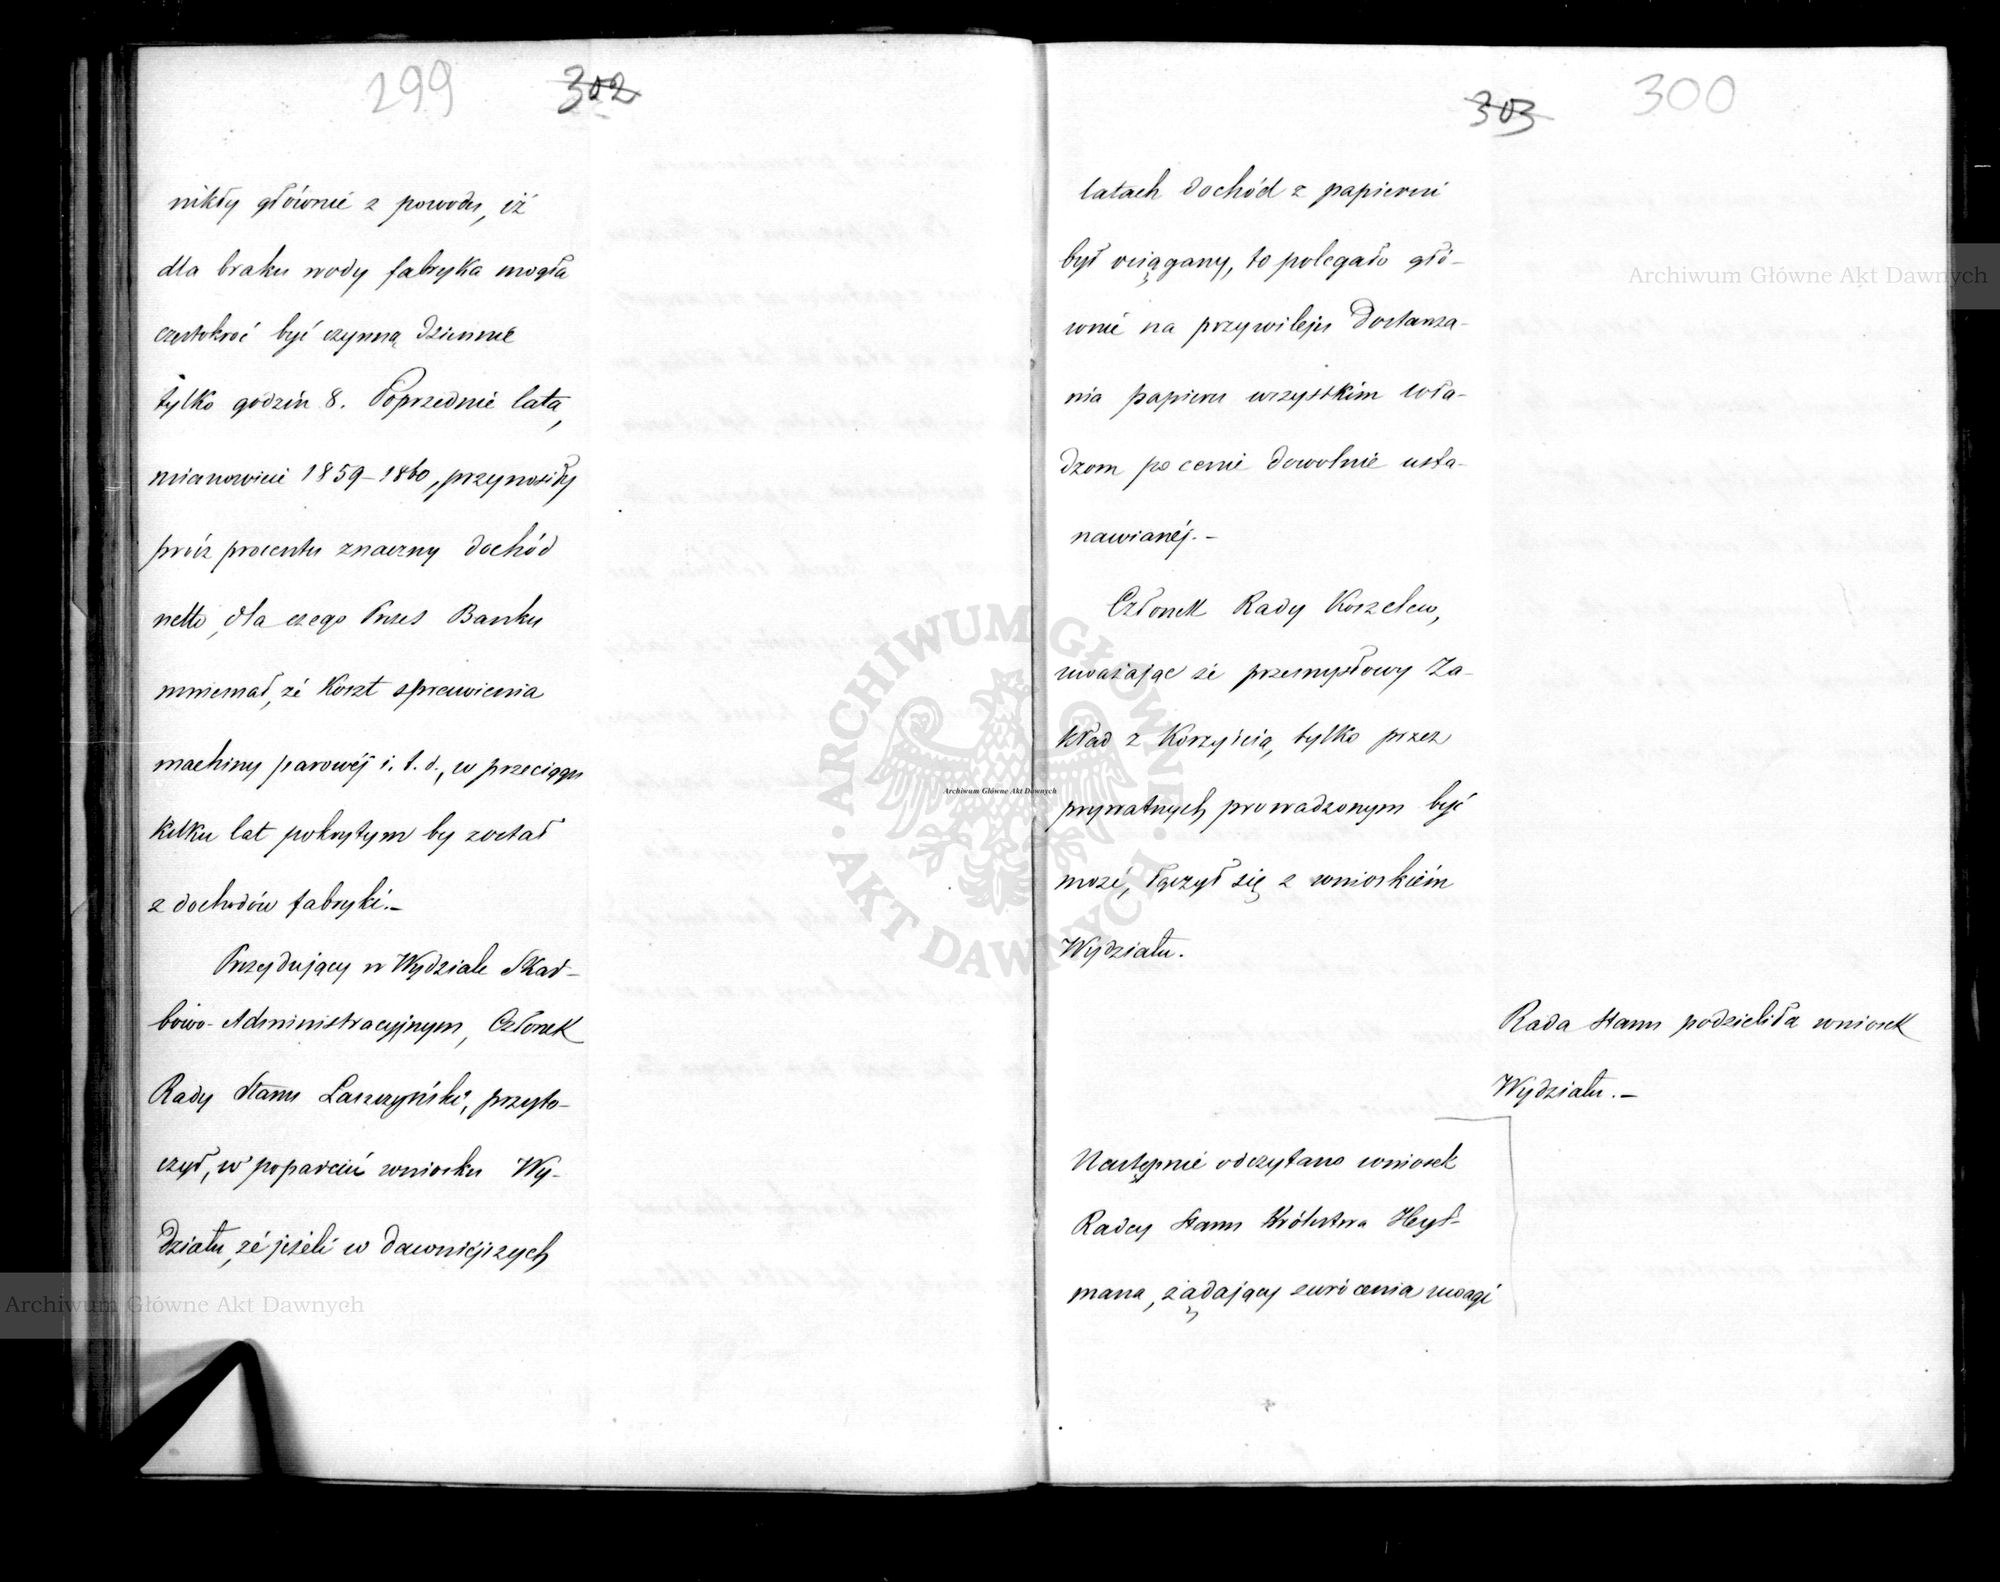 299 302
nikły głównie z powodu, iż
dla braku wody fabryka mogła
częstokroć być czynną dziennie
tylko godzin 8. Poprzednie lata,
mianowicie 1859–1860, przynosiły
prócz procentu znaczny dochód
netto, dla czego Prezes Banku
mniemał, że koszt sprawienia
machiny parowéj i. t. d., w przeciągu
kilku lat pokrytym by został
z dochodów fabryki.–
Prezydujący w Wydziale Skar-
bowo-Administracyjnym, Członek
Rady Stanu Łaszczyński, przyto-
czył, w poparciu wniosku Wy-
działu, że jeżeli w dawniéjszych
303 300
latach dochód z papierni
był osiągany, to polegało głó-
wnie na przywileju dostarcza-
nia papieru wszystkim wła-
dzom po cenie dowolnie usta-
nawianéj.–
Członek Rady Korzelew,
uważając że przemysłowy Za-
kład z korzyścią, tylko przez
prywatnych prowadzonym być
może, łączył się z wnioskiem
Wydziału.
Rada Stanu podzieliła wniosek
Wydziału.–
Następnie odczytano wniosek
Radcy Stanu Królestwa Heyl-
mana, żądający zwrócenia uwagi
Archiwum Główne Akt Dawnych
Archiwum Główne Akt Dawnych
Archiwum Główne Akt Dawnych
ARCHIWUM GŁÓWNE · AKT DAWNYCH ·